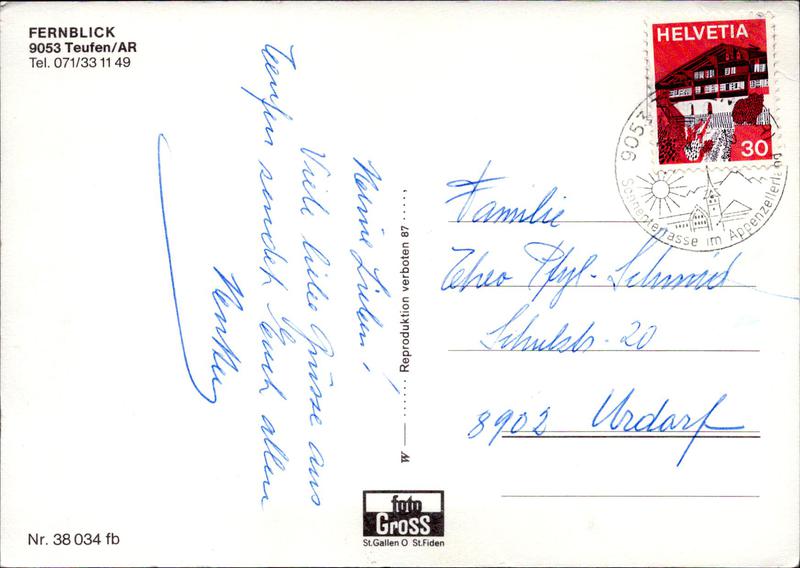 FERNBLICK
9053 Teufen/AR
Tel. 071/33 11 49
Meine Lieben!
Viele liebe Grüsse aus
Teufen sendet Euch allen
Reproduktion verboten 87
W
HELVETIA
30
9053
Sonnenterrasse im Appenzellerland
Familie
Theo Pfyl-Schmid
Schulstr. 20
8902 Urdorf
foto
Gross
St.Gallen O St.Fiden
Nr. 38 034 fb